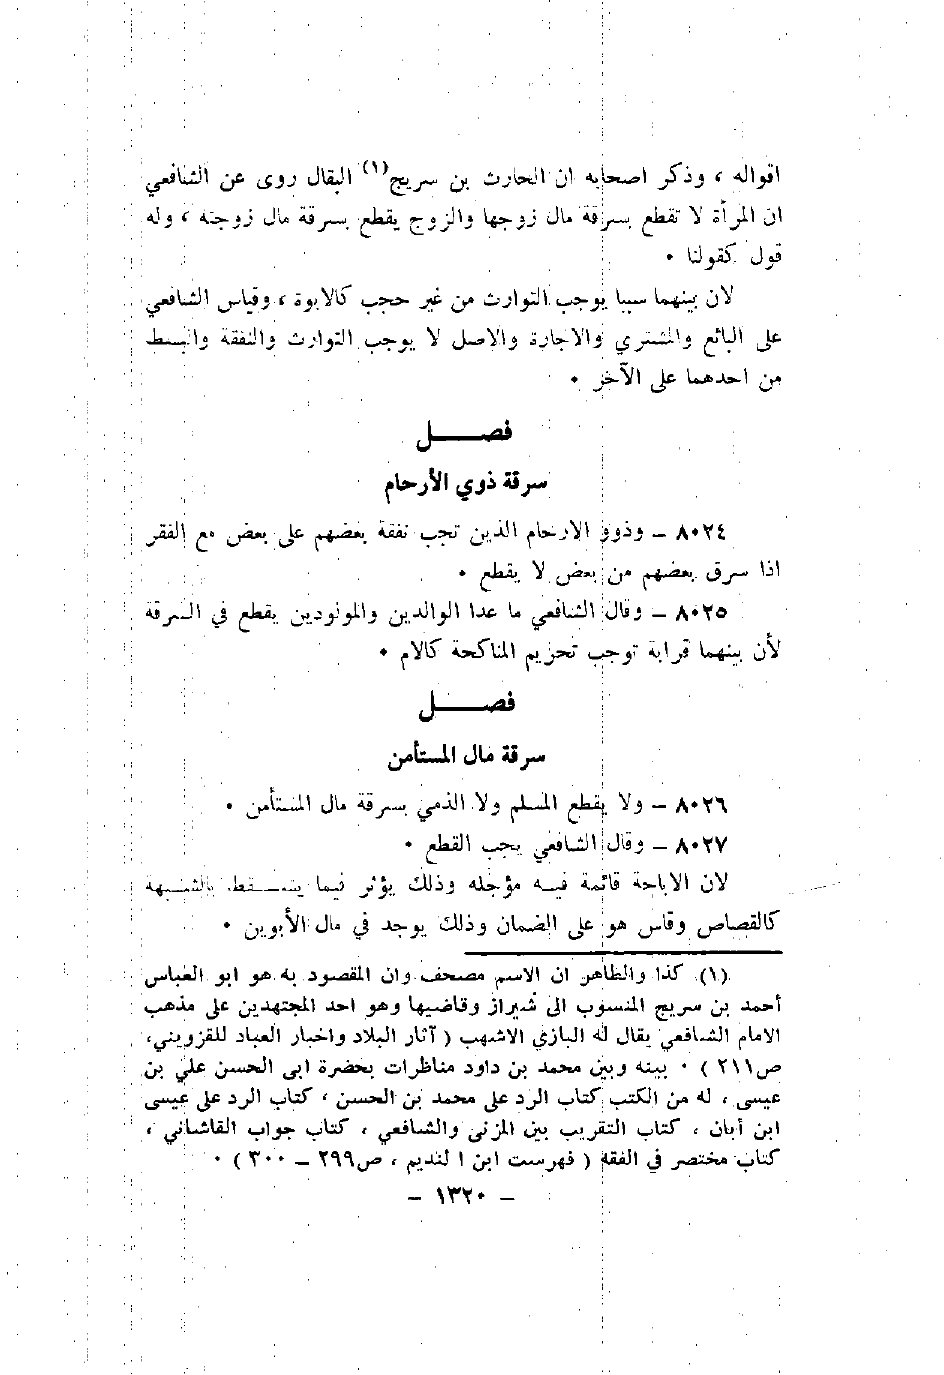 اقواله ، وذكر اصحابه ان الحارث بن سريج(١) البقال روى عن الشافعي
ان المرأة لا تقطع بسرقة مال زوجها والزوج يقطع بسرقة مال زوجته ، وله
قول كقولنا ٠
لان بينهما سببا يوجب التوارث من غير حجب كالابوة ، وقياس الشافعي
على البائع والمشتري والاجارة والاصل لا يوجب التوارث والنفقة والبسط
من احدهما على الآخر ٠
فصـــــل
سرقة ذوي الأرحام
٨٠٢٤ – وذوو الارحام الذين تجب نفقة بعضهم على بعض مع الفقر
اذا سرق بعضهم من بعض لا يقطع ٠
٨٠٢٥ – وقال الشافعي ما عدا الوالدين والمولودين يقطع في السرقة
لأن بينهما قرابة توجب تحريم المناكحة كالام ٠
فصـــــل
سرقة مال المستأمن
٨٠٢٦ – ولا يقطع المسلم ولا الذمي بسرقة مال المستأمن ٠
٨٠٢٧ – وقال الشافعي يجب القطع ٠
لان الاباحة قائمة فيه مؤجله وذلك يؤثر فيما يسقط بالشبهة
كالقصاص وقاس هو على الضمان وذلك يوجد في مال الأبوين ٠
(١) كذا والظاهر ان الاسم مصحف وان المقصود به هو ابو العباس
أحمد بن سريج المنسوب الى شيراز وقاضيها وهو احد المجتهدين على مذهب
الامام الشافعي يقال له البازي الاشهب ( آثار البلاد واخبار العباد للقزويني،
ص٢١١ ) ٠ بينه وبين محمد بن داود مناظرات بحضرة ابى الحسن علي بن
عيسى ، له من الكتب كتاب الرد على محمد بن الحسن ، كتاب الرد على عيسى
ابن أبان ، كتاب التقريب بين المزنى والشافعي ، كتاب جواب القاشاني ،
كتاب مختصر في الفقه ( فهرست ابن ا لنديم ، ص٢٩٩ – ٣٠٠ ) ٠
– ١٣٢٠ –